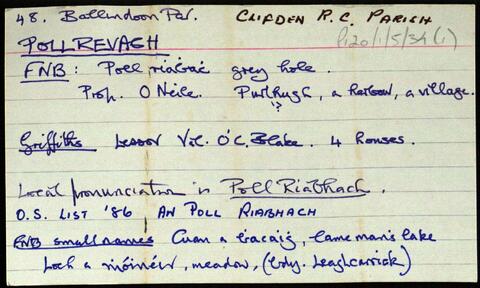 48. Ballindoon Par. CLIFDEN R.C. PARISH
P120/1/5/34(1)
POLLREVAGH
FNB: Poll riabac grey hole.
Prop. O Neile. Purlhugh, a harbour, a village.
?
Griffiths Lessor Val. O'C. Blake. 4 houses.
Local pronunciation is Poll Riabhach.
O.S. LIST '86 AN POLL RIABHACH
FNB small names Cuan a bacaig, lame man's lake
Loch a móinéir, meadow, (bdy. Leaghcarrick)